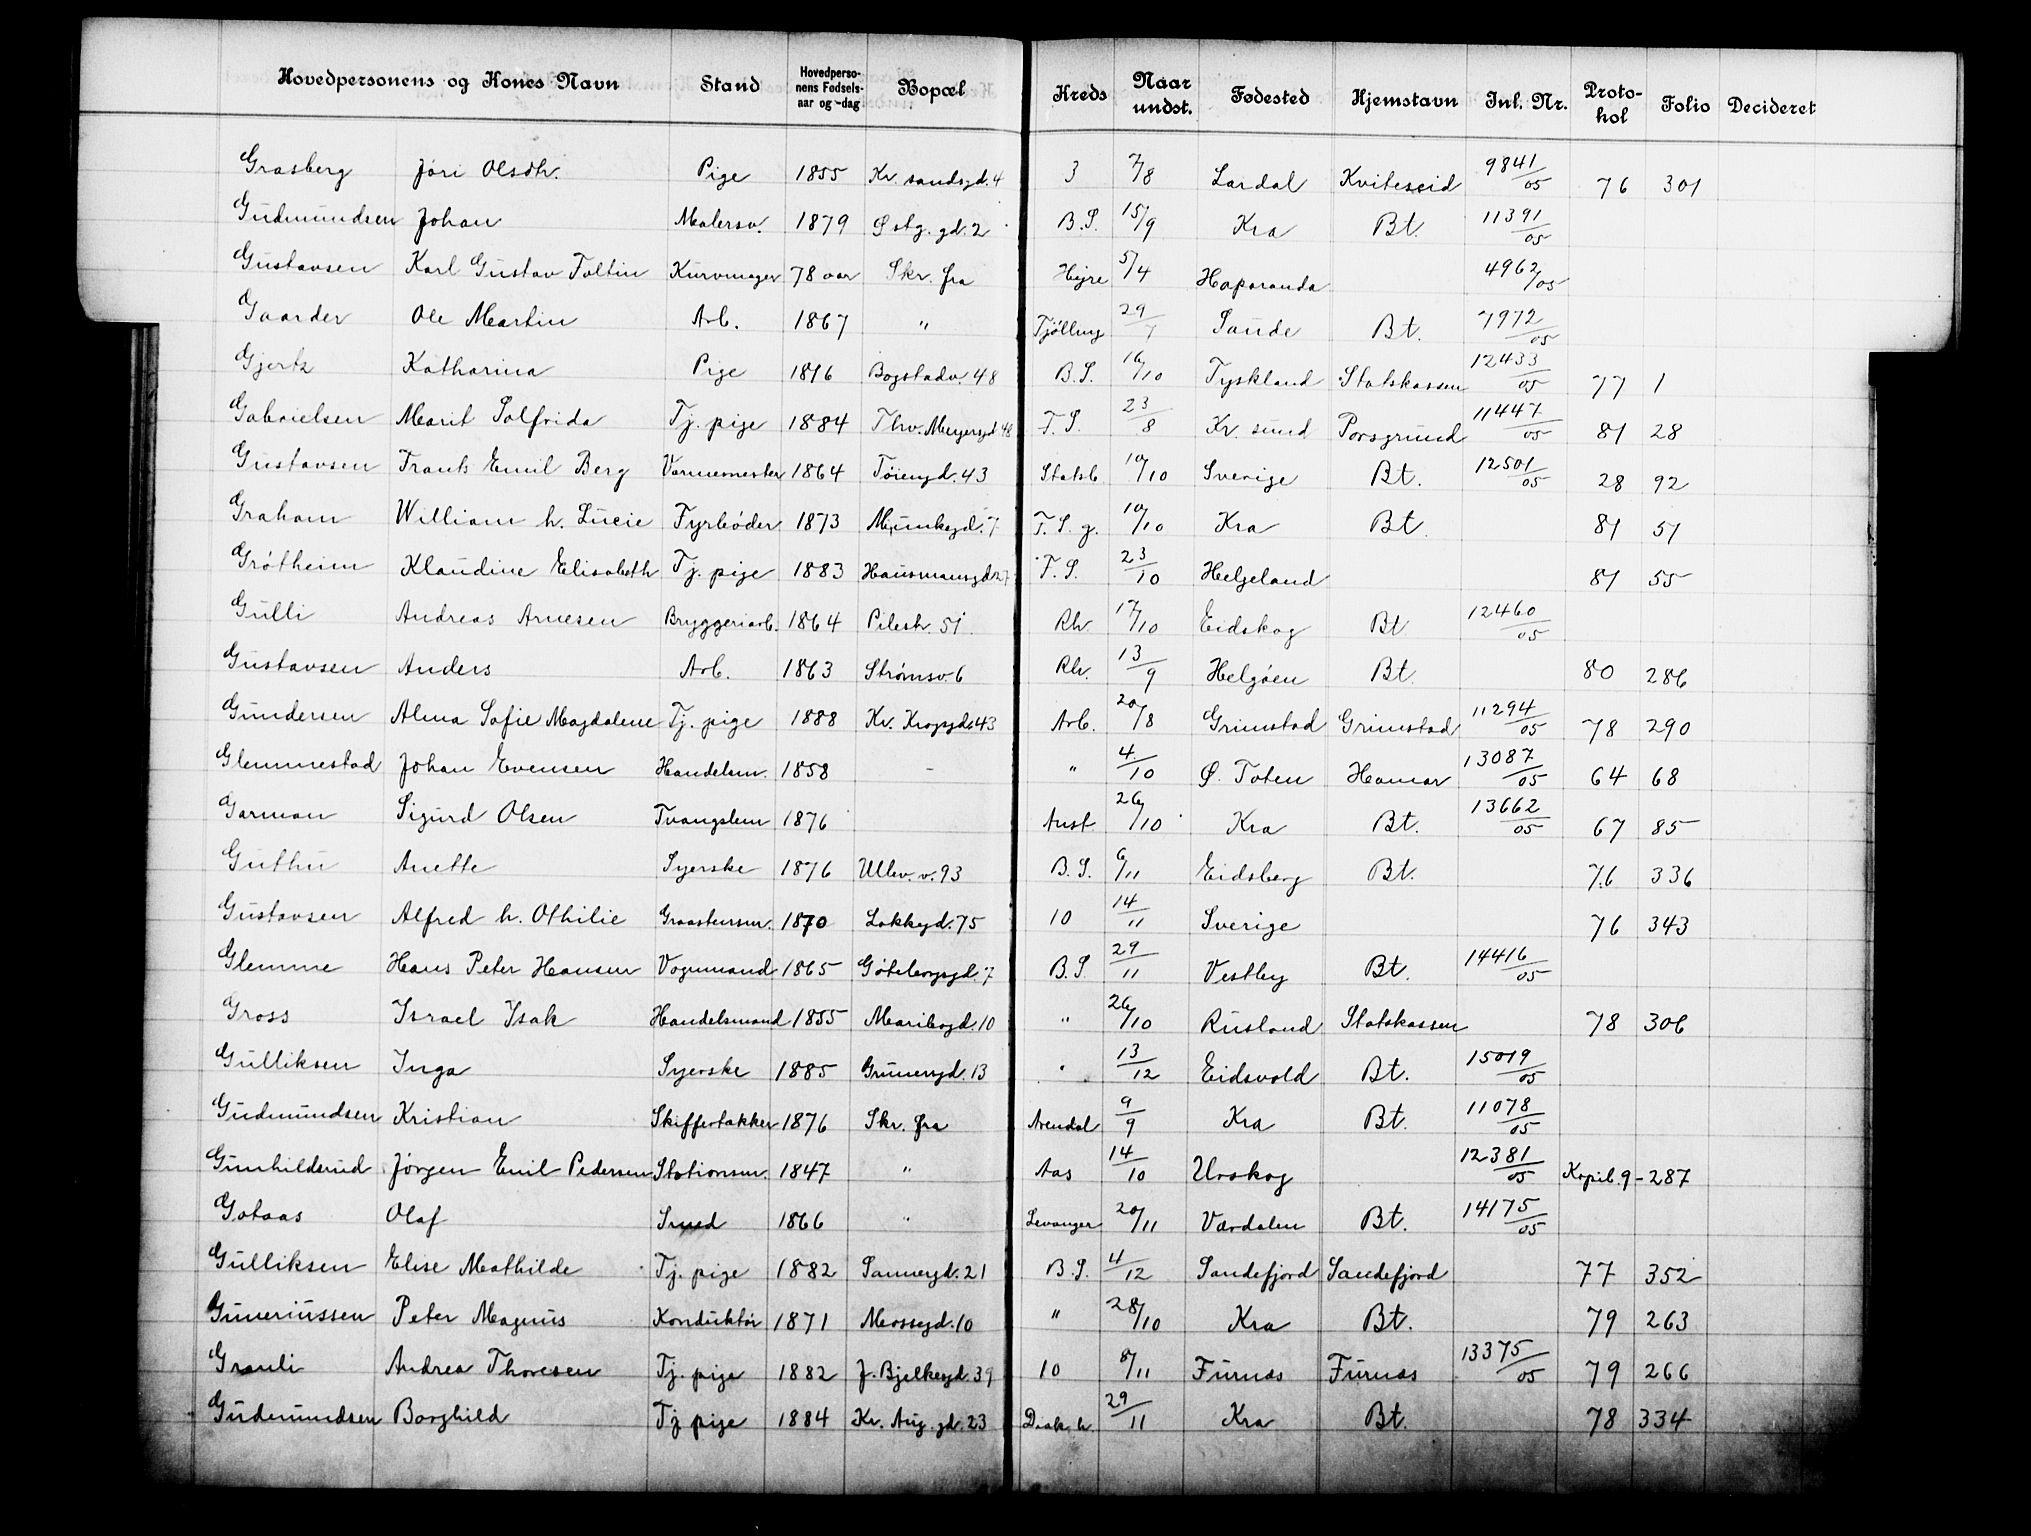 Hovedpersonens og Kones Navn Stand Hovedperso-nens Fødsels-aar og -dag Bopæl Kreds Naar undst. Fødested Hjemstavn Inl. Nr. Proto-kol Folio Decideret
Grasberg Jøri Olsdtr. Pige 1855 Kr. sandsgd. 4 3 7/8 Lardal Kviteseid 9841/05 76 301
Gudmundsen Johan Malersv. 1879 Østg. gd. 2 B.S. 15/9 Kra Bt. 11391/05
Gustavsen Karl Gustav Toltin Kurvmager 78 aar Skr. fra Hijre 5/4 Haparanda 4962/05
Gaarder Ole Martin Arb. 1867 " Tjølling 29/7 Sande Bt. 7972/05
Gjertz Katharina Pige 1816 Bogstadv. 48 B.S. 16/10 Tyskland Statskassen 12433/05 77 1
Gabrielsen Marit Solfrida Tj. pige 1884 Thv. Meyersgd 48 F.S. 23/8 Kr. sund Porsgrund 11447/05 81 28
Gustavsen Frants Emil Berg Varmemester 1864 Tøiengd. 43 Statsb 10/10 Sverige Bt. 12501/05 28 92
Graham William h. Lucie Fyrbøder 1873 Munkegd. 7 F.S.g. 10/10 Kra Bt. 81 51
Grøtheim Klaudine Elisabeth Tj. pige 1883 Hausmansgd 27 F.S. 23/10 Helgeland 81 55
Gulli Andreas Arnesen Bryggeriarb. 1864 Pilestr. 51. Rh. 17/10 Eidskog Bt 12460/05
Gustavsen Anders Arb. 1863 Strømsv 6 Rh. 13/9 Helgøen Bt. 80 286
Gundersen Alma Sofie Magdalene Tj. pige 1888 Kr. Krogsgd 43 Arb. 20/8 Grimstad Grimstad 11294/05 78 290
Glemmestad Johan Evensen Handelsm. 1858 - " 4/10 Ø. Toten Hamar 13087/05 64 68
Garman Sigurd Olsen Tvangslem 1876 Anst 26/10 Kra Bt. 13662/05 67 85
Guthu Anette Syerske 1876 Ullev. v. 93 B.S. 6/11 Eidsberg Bt. 76 336
Gustavsen Alfred h. Othilie Graastensm. 1870 Lakkegd. 75 10 14/11 Sverige 76 343
Glemme Hans Peter Hansen Vognmand 1865 Gøteborgsgd. 7 B.S. 29/11 Vestby Bt. 14416/05
Gross Israel Isak Handelsmand 1855 Maribogd. 10 " 26/10 Rusland Statskassen 78 306
Gulliksen Inga Syerske 1885 Grünersgd. 13 " 13/12 Eidsvold Bt. 15019/05
Gudmundsen Kristian Skiffertækker 1876 Skr. fra Arendal 9/9 Kra Bt. 11078/05
Gunhildsrud Jørgen Emil Pedersen Stationsm. 1847 " Aas 14/10 Urskog 12381/05 Kopib. 9 - 287
Gotaas Olaf Smed 1866 " Levanger 20/11 Værdalen Bt. 14175/05
Gulliksen Elise Mathilde Tj. pige 1882 Sannergd. 21 B.S. 4/12 Sandefjord Sandefjord 77 352
Guneriussen Peter Magnus Konduktør 1871 Mossegd. 10 " 28/10 Kra Bt. 79 263
Granli Andrea Thoresen Tj. pige 1882 J. Bjelkesgd. 39 10 8/11 Furnæs Furnæs 13375/05 79 266
Gudmundsen Borghild Tj pige 1884 Kr. Aug. gd. 23 Diak. h. 29/11 Kra Bt. 78 334